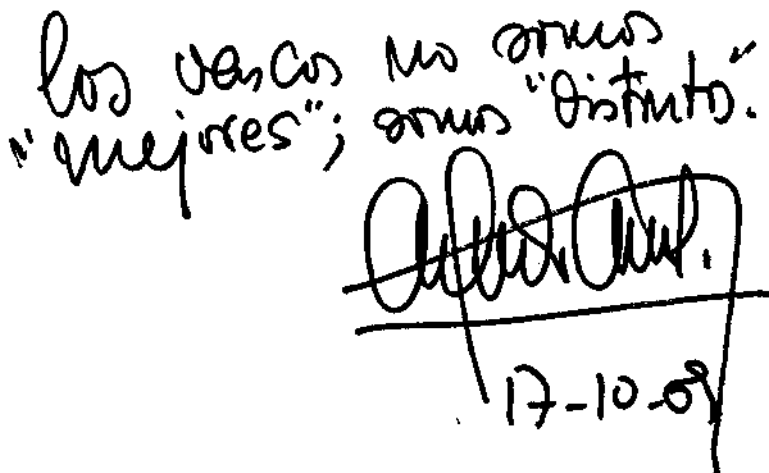 los vascos no somos
"mejores"; somos "distintos".
17-10-09